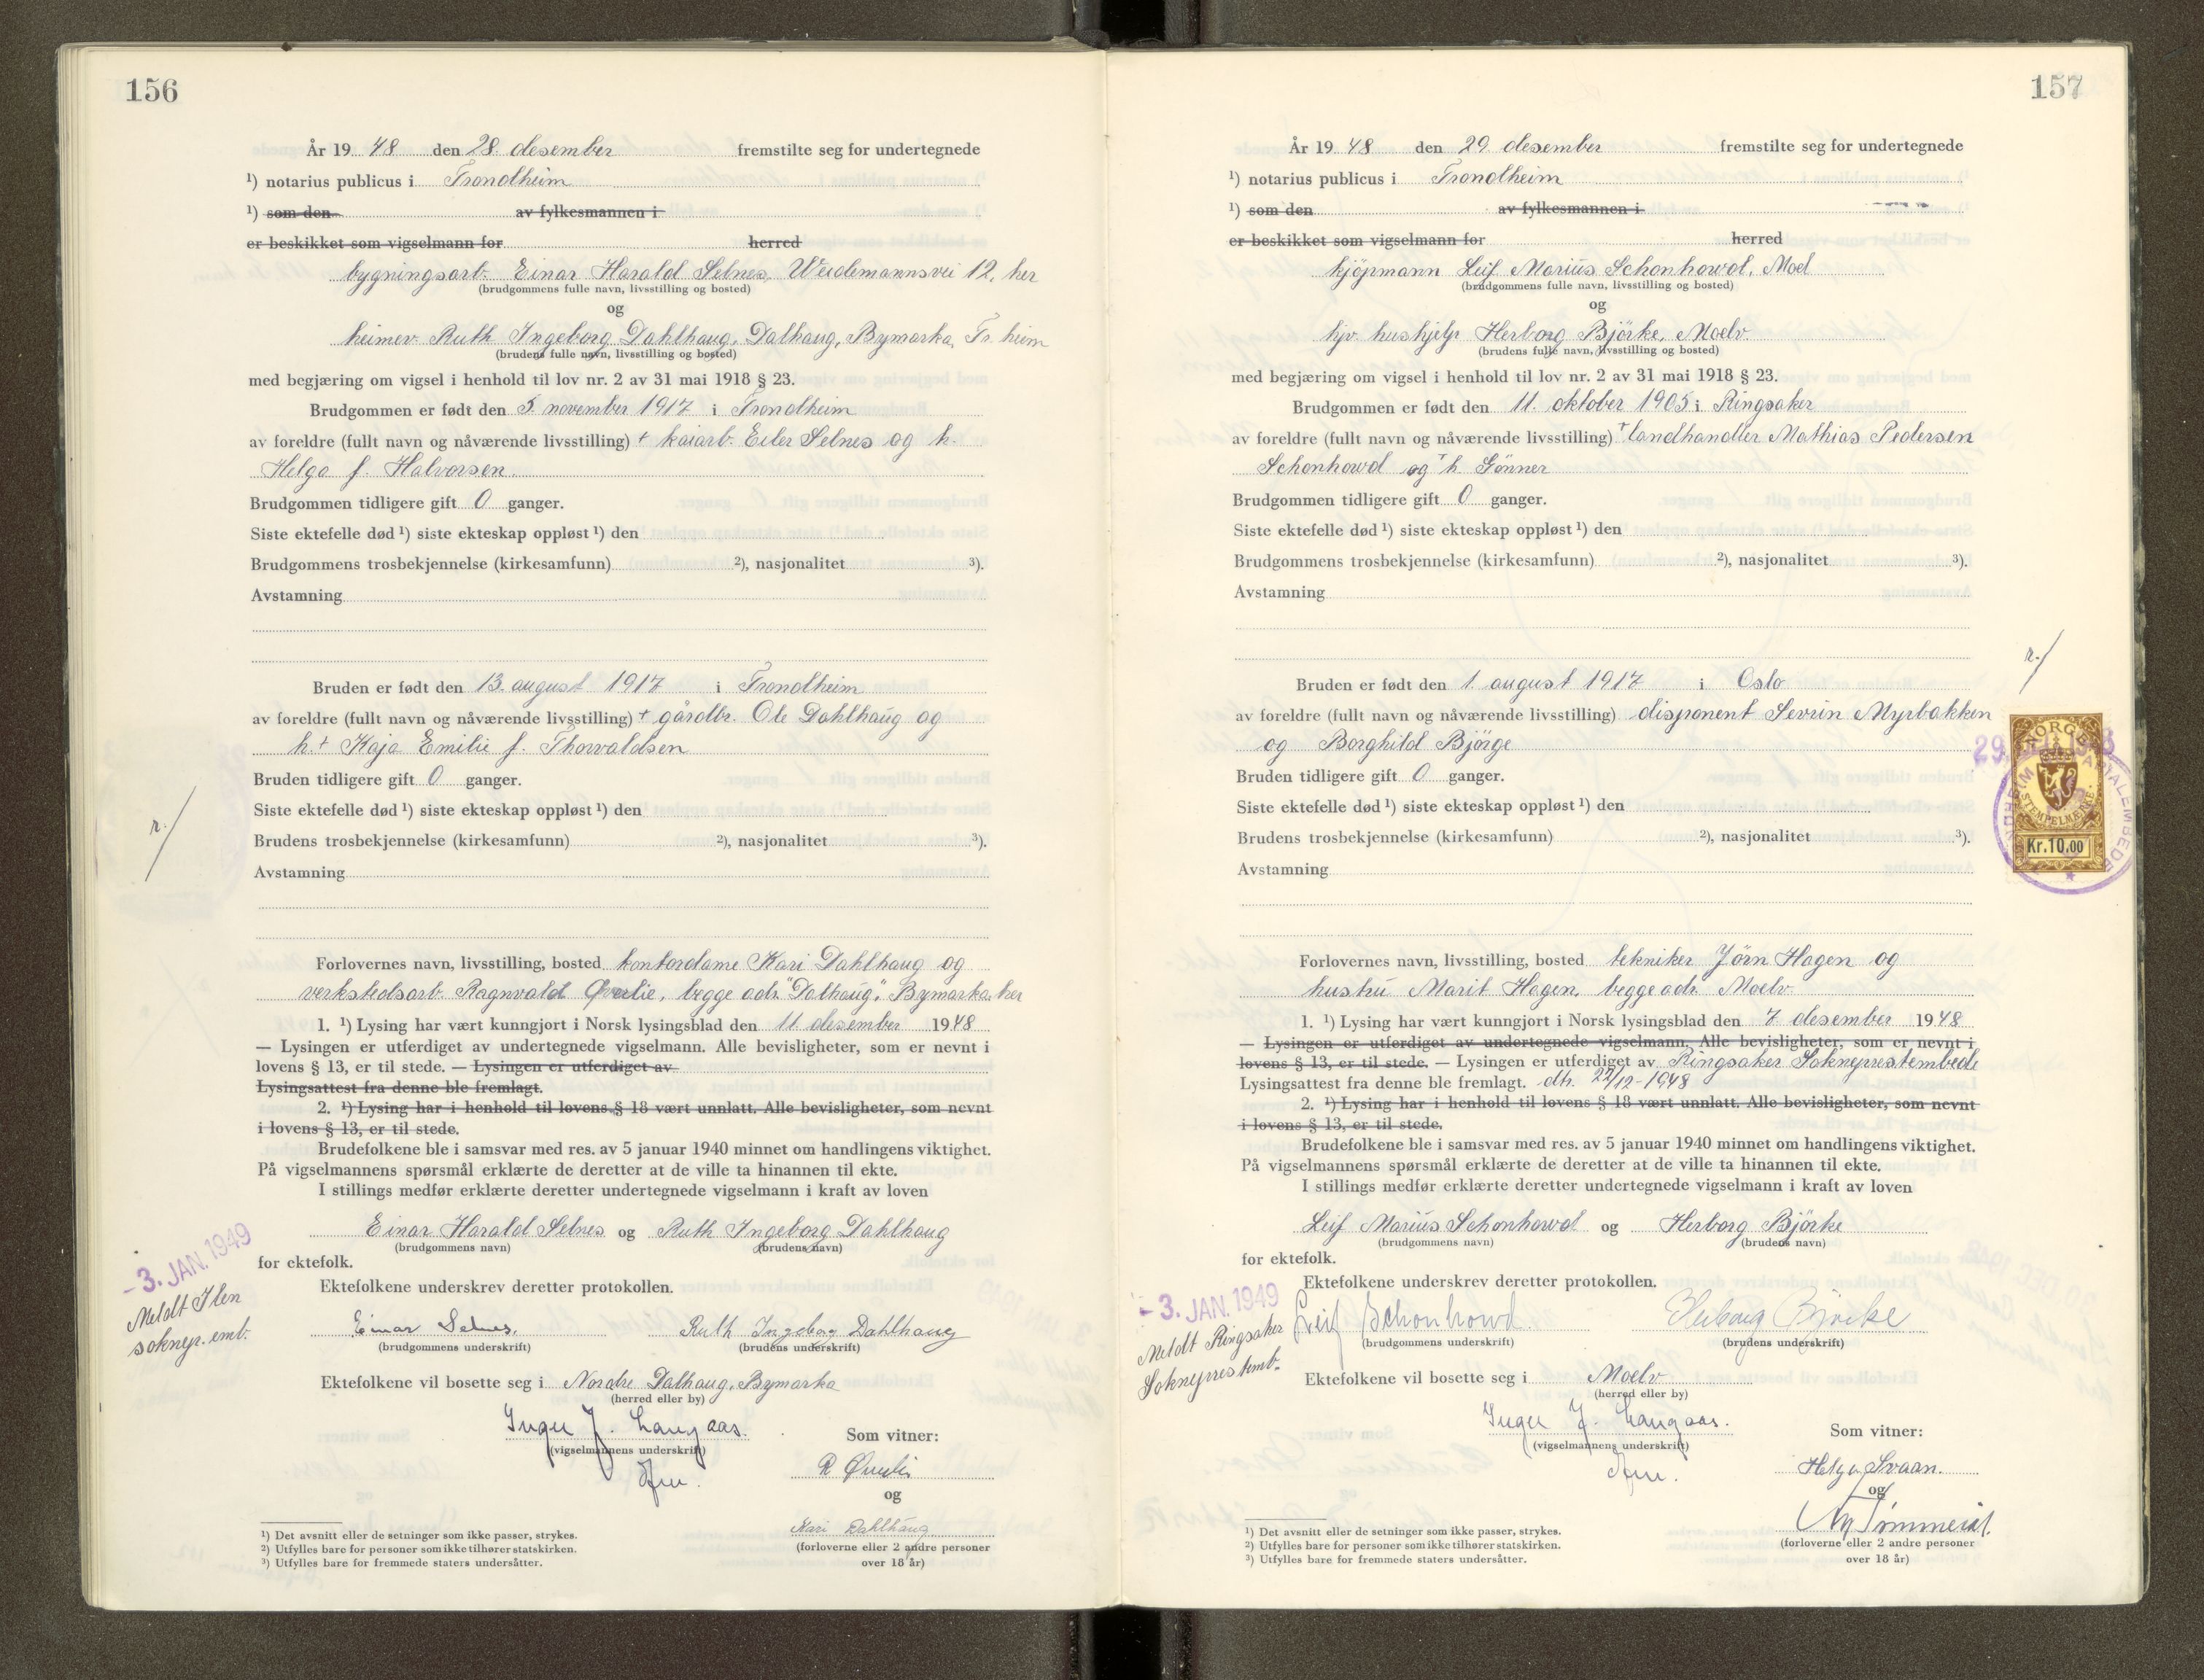 156
År 19 48 den 28. desember fremstilte seg for undertegnede
¹) notarius publicus i Trondheim
¹) som den av fylkesmannen i
er beskikket som vigselmann for herred
bygningsarb. Einar Harald Selnes, Weidemannsvei 12, her
(brudgommens fulle navn, livsstilling og bosted)
og
heimev. Ruth Ingeborg Dahlhaug, Dalhaug, Bymarka, Tr.heim
(brudens fulle navn, livsstilling og bosted)
med begjæring om vigsel i henhold til lov nr. 2 av 31 mai 1918 § 23.
Brudgommen er født den 5. november 1917 i Trondheim
av foreldre (fullt navn og nåværende livsstilling) + kaiarb. Eiler Selnes og h.
Helga f. Halvorsen.
Brudgommen tidligere gift 0 ganger.
Siste ektefelle død ¹) siste ekteskap oppløst ¹) den
Brudgommens trosbekjennelse (kirkesamfunn) ²), nasjonalitet ³).
Avstamning
Bruden er født den 13. august 1917 i Trondheim
av foreldre (fullt navn og nåværende livsstilling) + gårdbr. Ole Dahlhaug og
h. + Kaja Emilie f. Thorvaldsen
Bruden tidligere gift 0 ganger.
Siste ektefelle død ¹) siste ekteskap oppløst ¹) den
r./
Brudens trosbekjennelse (kirkesamfunn) ²), nasjonalitet ³).
Avstamning
Forlovernes navn, livsstilling, bosted kontordame Kari Dahlhaug og
verkstedsarb. Ragnvald Øverlie, begge adr. "Dalhaug", Bymarka, her
1. ¹) Lysing har vært kunngjort i Norsk lysingsblad den 11. desember 1948
— Lysingen er utferdiget av undertegnede vigselmann. Alle bevisligheter, som er nevnt i
lovens § 13, er til stede. — Lysingen er utferdiget av
Lysingsattest fra denne ble fremlagt.
2. ¹) Lysing har i henhold til lovens § 18 vært unnlatt. Alle bevisligheter, som nevnt
i lovens § 13, er til stede.
Brudefolkene ble i samsvar med res. av 5 januar 1940 minnet om handlingens viktighet.
På vigselmannens spørsmål erklærte de deretter at de ville ta hinannen til ekte.
I stillings medfør erklærte deretter undertegnede vigselmann i kraft av loven
Einar Harald Selnes og Ruth Ingeborg Dahlhaug
(brudgommens navn) (brudens navn)
for ektefolk.
- 3. JAN. 1949
Meldt Ilen
soknepr. emb.
Ektefolkene underskrev deretter protokollen.
Einar Selnes. Ruth Ingeborg Dahlhaug
(brudgommens underskrift) (brudens underskrift)
Ektefolkene vil bosette seg i Nordre Dalhaug, Bymarka
(herred eller by)
Inger J. Langaas.
(vigselmannens underskrift)
Som vitner:
R Øverlie
og
Kari Dahlhaug
(forloverne eller 2 andre personer
over 18 år)
¹) Det avsnitt eller de setninger som ikke passer, strykes.
²) Utfylles bare for personer som ikke tilhører statskirken.
³) Utfylles bare for fremmede staters undersåtter.
157
År 19 48 den 29. desember fremstilte seg for undertegnede
¹) notarius publicus i Trondheim
¹) som den av fylkesmannen i
er beskikket som vigselmann for herred
kjöpmann Leif Marius Schonhowd, Moel
(brudgommens fulle navn, livsstilling og bosted)
og
hjv. hushjelp Herborg Björke, Moelv.
(brudens fulle navn, livsstilling og bosted)
med begjæring om vigsel i henhold til lov nr. 2 av 31 mai 1918 § 23.
Brudgommen er født den 11. oktober 1905 i Ringsaker
av foreldre (fullt navn og nåværende livsstilling) + landhandler Mathias Pedersen
Schonhowd og + h. Gönner
Brudgommen tidligere gift 0 ganger.
Siste ektefelle død ¹) siste ekteskap oppløst ¹) den
Brudgommens trosbekjennelse (kirkesamfunn) ²), nasjonalitet ³).
Avstamning
r./
Bruden er født den 1. august 1917 i Oslo
av foreldre (fullt navn og nåværende livsstilling) disponent Sevrin Myrbakken
og Borghild Björge
NORGE
STEMPELMERKE
Kr. 10.00
Bruden tidligere gift 0 ganger.
Siste ektefelle død ¹) siste ekteskap oppløst ¹) den
Brudens trosbekjennelse (kirkesamfunn) ²), nasjonalitet ³).
Avstamning
Forlovernes navn, livsstilling, bosted tekniker Jörn Hagen og
hustru Marit Hagen, begge adr. Moelv.
1. ¹) Lysing har vært kunngjort i Norsk lysingsblad den 7. desember 1948
— Lysingen er utferdiget av undertegnede vigselmann. Alle bevisligheter, som er nevnt i
lovens § 13, er til stede. — Lysingen er utferdiget av Ringsaker Sokneprestembede
Lysingsattest fra denne ble fremlagt. dtr. 22/12-1948
2. ¹) Lysing har i henhold til lovens § 18 vært unnlatt. Alle bevisligheter, som nevnt
i lovens § 13, er til stede.
Brudefolkene ble i samsvar med res. av 5 januar 1940 minnet om handlingens viktighet.
På vigselmannens spørsmål erklærte de deretter at de ville ta hinannen til ekte.
I stillings medfør erklærte deretter undertegnede vigselmann i kraft av loven
Leif Marius Schonhowd og Herborg Björke
(brudgommens navn) (brudens navn)
for ektefolk.
- 3. JAN. 1949
Meldt Ringsaker
Sokneprestemb.
Ektefolkene underskrev deretter protokollen.
Leif Schonhowd. Herborg Björke
(brudgommens underskrift) (brudens underskrift)
Ektefolkene vil bosette seg i Moelv
(herred eller by)
Inger J. Langaas.
(vigselmannens underskrift)
Som vitner:
Helga Svaan.
og
(forloverne eller 2 andre personer
over 18 år)
¹) Det avsnitt eller de setninger som ikke passer, strykes.
²) Utfylles bare for personer som ikke tilhører statskirken.
³) Utfylles bare for fremmede staters undersåtter.